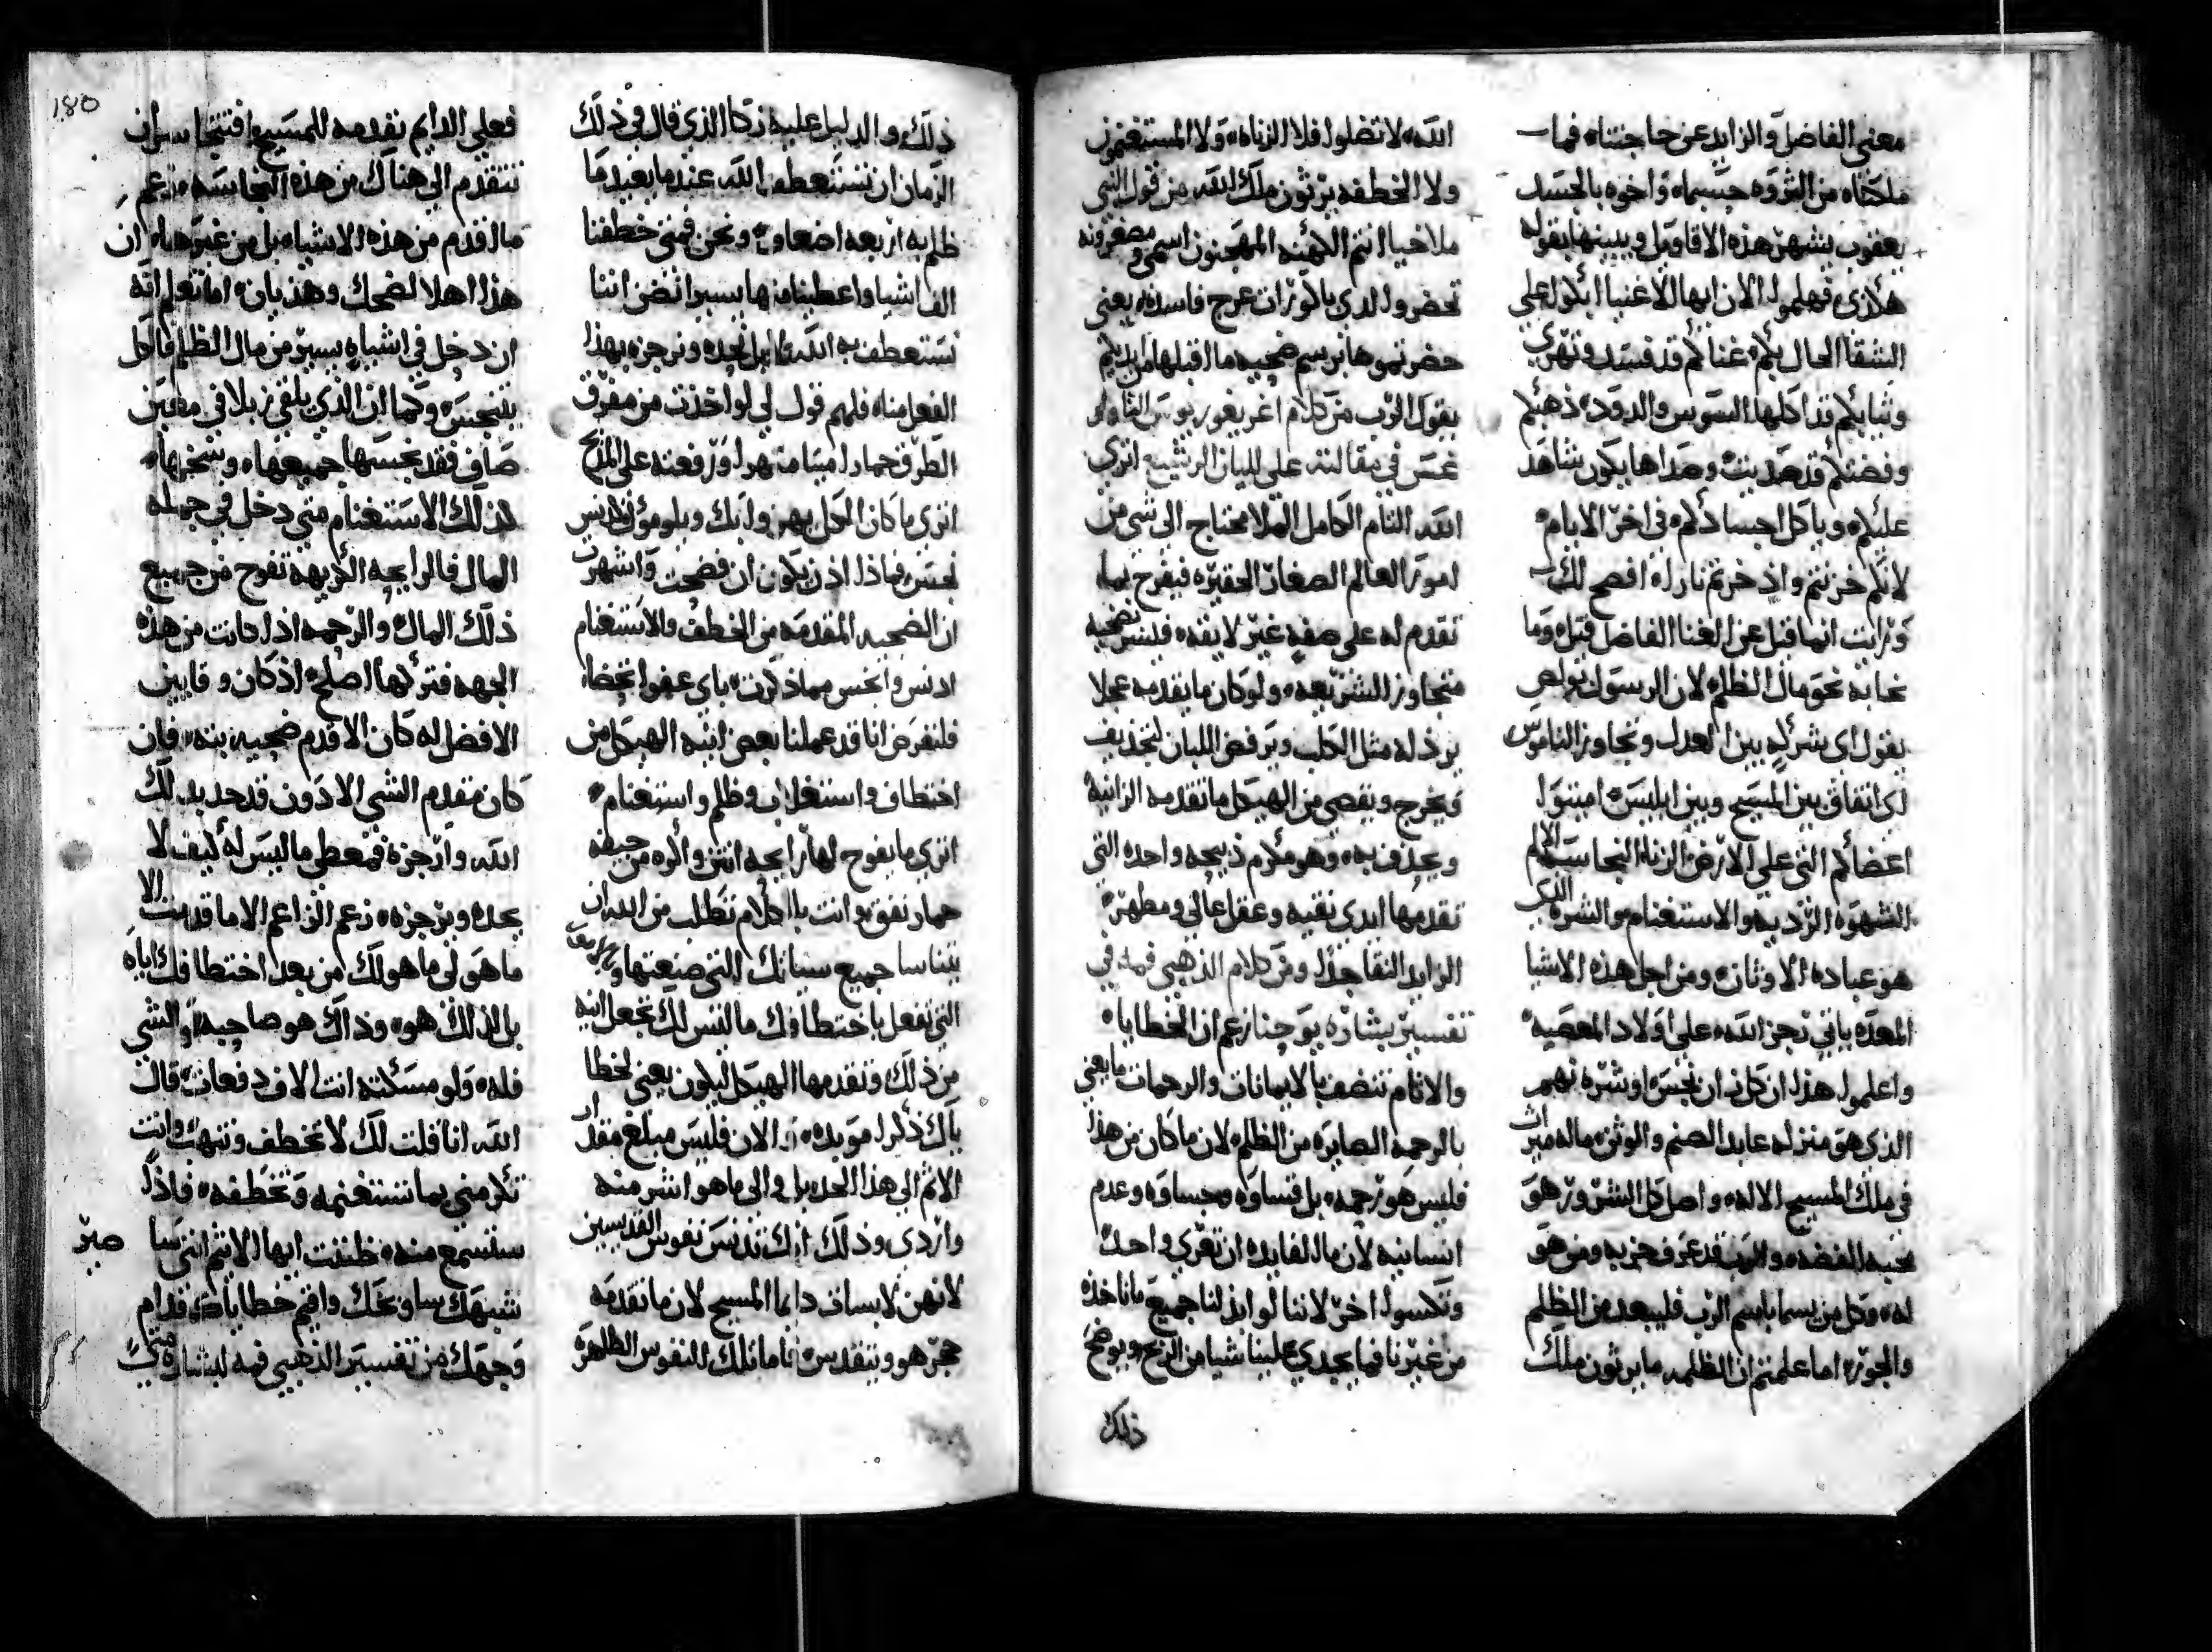 معني الفاضل والزايد عن حاجتناه فما
ملكناه من الثروه جسيماه واخوه بالجسد
يعقوب يشهر هذه الاقاويل ويبينها بقوله
هلذي فهلموا الان ايها الاغنيا ابكوا علي
الشقا الحال بكم غناكم قد فسد وتهري
وثيابكم قد اكلها السوس والدود ذهبكم
وفضتكم قد صديت وصداها يكون شاهد
عليكم وياكل اجسادكم في اخر الايام
لانكم خزنتم واذخرتم نارا افصح لك
ورايت انما قيل عن الغنا الفاضل قيل وما
نحا به نحو مال الظلم لان الرسول بولص
يقول اي شركه بين العدل وتجاوز الناموس
اي اتفاق بين المسيح وبين ابليس اميتوا
اعضاكم التي علي الارض الزنا النجاسه الالم
الشهوه الرديه والاستغنام والشره الذي
هو عباده الاوثان ومن اجل هذه الاشيا
المعده ياتي رجز الله علي اولاد المعصيه
واعلموا هذا ان كل زان نجس او شره نهم
الذي هو منزله عابد الصنم والوثن ماله ميراث
في ملك المسيح الاله واصل كل الشرور هو
محبه الفضه والرب قد عرف حزبه ومن هو
له وكل من يسما باسم الرب فليبعد من الظلم
والجور اما علمتم ان الظلمه ما يرثون ملك
الله لا تضلوا فلا الزناه ولا المستغنمون
ولا الخطفه يرثون ملك الله من قول النبي
ملاخيا انتم الكهنه المهجنون اسمي ومصغرونه
تحضروا لدي باكورات عرج فاسده يعني
حضرتموها برسم ضحيه ما اقبلها من ايديكم
يقول الرب من كلام اغريغوريوس الثاولوغس
غمس في مقالته علي لبيان الرشيع اتري
الله التام الكامل الملا محتاج الي شي من
امور العالم الصغار الحقيره فيفرح بما
تقدم له علي صفه غير لايقه فليس تضحيه
متجاوز للشريعه ولو كان ما يقدمه عجلا
يرذله مثل الكلب ويرفض اللبان لتجديف
ويخرج ويقصي من الهيكل ما تقدمه الزانيه
ويحذف به وهو مكرم ذبيحه واحده التي
تقدمها ايدي نقيه وعقل عالي ومطهر
الزايد النقا جدا ومن كلام الذهبي فمه في
تفسير بشاره يوحنا زعم ان الخطايا
والاثام تنضف بالايمانات والرحمات ما يعني
بالرحمه الصايره من الظلم لان ما كان من هذا
فليس هو رحمه بل قساوه وجساوه وعدم
انسانيه لان ما الفايده ان تعري واحد
وتكسوا اخر لاننا لو ابذلنا جميع ما ناخذه
من غيرنا فما يجدي علينا شيا من الربح ويوضح
ذلك
ذلك والدليل عليه زكا الذي قال في ذلك
الزمان ان نستعطف الله عندما يعيد ما
ظلم به اربعه اضعاو ونحن فمتي خطفنا
الف اشيا واعطينا منها يسير انضن اننا
نستعطف به الله بل نحده ونرجزه بهذا
الفعل مناه فلهم قول لي لو اخذت من مفرق
الطرق حمارا ميتا متهرا ورفعته علي المذبح
اتري ما كان الكل يهزوا بك ويلوموك كدنس
نجس فماذا اذن يكون ان فضحت واشهرت
ان الضحيه المقدمه من الخطف والاستغنام
ادنس وانجس مما ذكرت باي عفوا تحضاه
فلنفرض انا قد عملنا بعض انيه الهيكل من
اختطاف واستغلاب وظلم واستغنام
اتري ما يفوح لها رايحه انتن واكره من جيفه
حمار نفق وانت بالكلام تطلب من الله ان
يتناسا جميع سيياتك التي صنعتها وهي
التي تفعل باختطافك ما ليس لك تجعل انيه
من ذلك وتقدمها الهيكل ليكون يعني لخطا
ياك ذكرا مويده الان فليس مبلغ مقدار
الاثم الي هذا الحد بل والي ما هو اشر منه
واردي وذلك انك تدنس نفوس القديسين
لانهن لا بسات دايما المسيح لان ما تقدمه
حجر هو ويتقدس فاما تلك النفوس الطاهره
فعلي الدايم تقدمه للمسيح افتتجاسر ان
تتقدم الي هناك من هذه النجاسه زعم
ما اقدم من هذه الاشياه بل من غيرهاه ان
هذا اهلا لضحك وهذيان اما تعلم انه
ان دخل في اشياه يسير من مال الظلم فالكل
يتنجس وكما ان الذي يلقي زبلا في معين
صافي فقد نجسها جميعهاه وسخرهاه
كذلك الاستغنام متي دخل في جمله
المال فالرايحه الكريهه تفوح من جميع
ذلك المال والرحمه اذا كانت من هذه
الجهه فتركها اصلح اذ كان وقايين
الافضل له كان الا قدم ضحيه بته فان
كان مقدم الشي الادون قد جدا لك
الله وارجزه فمعطي ما ليس له كيف لا
يحده ويرجزه زعم الزاعم الا ما قدمت الا
ما هو لي ما هو لك من بعد اختطافك اياه
بل لذلك هو وذاك هو صاحبه والشي
فله ولو مسكته انت الاف دفعات قال
الله انا قلت لك لا تخطف وتنهك وانت
تكرمني بما تستغنمه وتخطفه فاذا
ستسمع منه ظننت ايها الاثم انني سا صير
شبيهك سا وبخك واقيم خطاياك قدام
وجهك من تفسير الذهبي فمه لبشاره متي
180